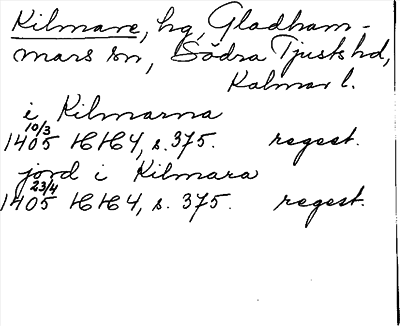 Kilmare, hg, Gladham-
mars sn, Södra Tjusts hd,
Kalmar l.
i Kilmarna
1405 10/3 HH 4, s. 375. regest.
jord i Kilmara
1405 23/4 HH 4, s. 375. regest.